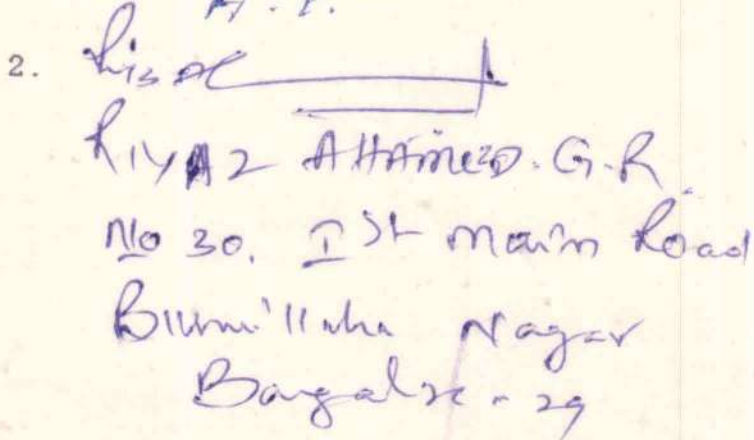 A.P.
2.
RIYAZ AHAMED. G.R.
No 30, Ist main Road
Bismillaha Nagar
Bangalore - 29